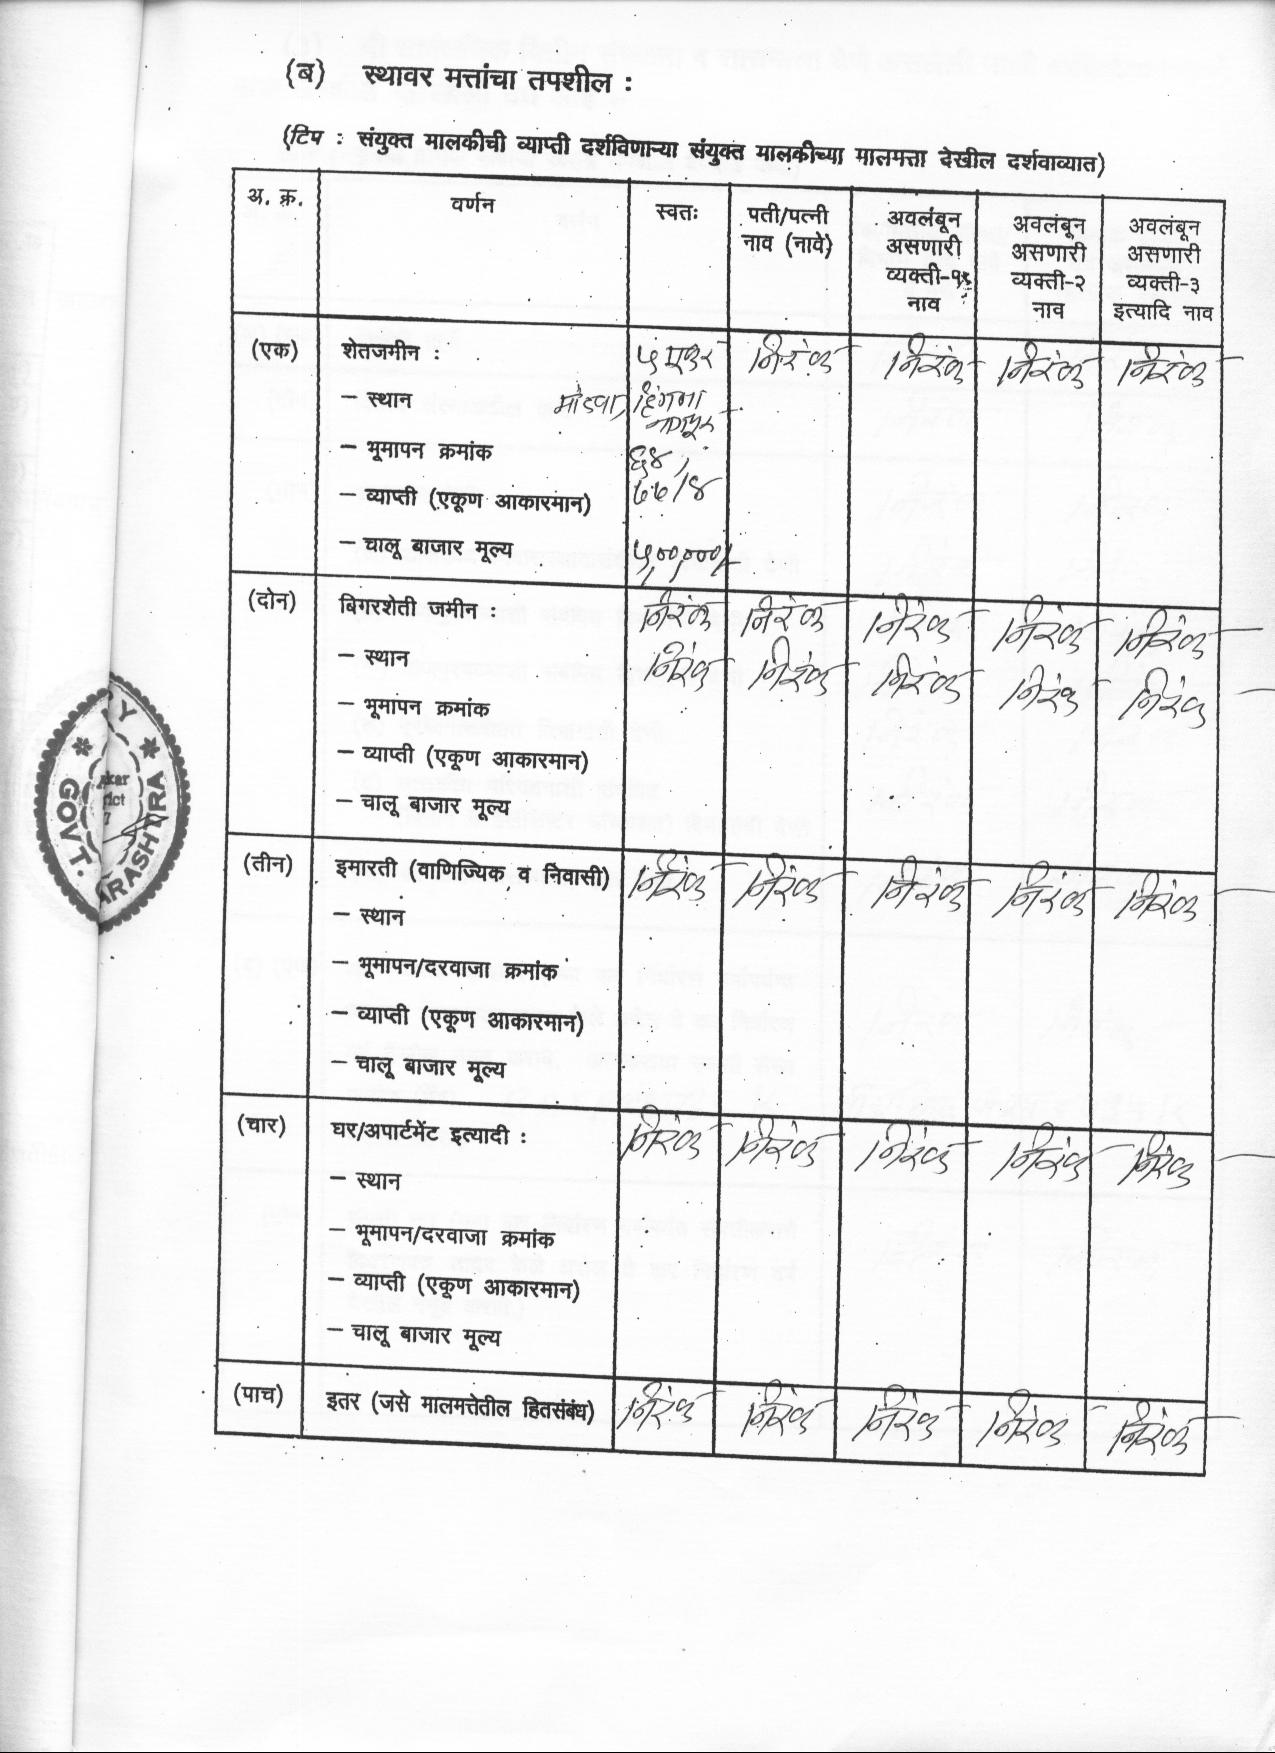 (ब) स्थावर मत्तांचा तपशील :
(टिप : संयुक्त मालकीची व्याप्ती दर्शविणाऱ्या संयुक्त मालकीच्या मालमत्ता देखील दर्शवाव्यात)
अ. क्र. वर्णन स्वतः पती/पत्नी नाव (नावे) अवलंबून असणारी व्यक्ती-१ नाव अवलंबून असणारी व्यक्ती-२ नाव अवलंबून असणारी व्यक्ती-३ इत्यादि नाव
(एक) शेतजमीन : ५ एकर निरंक निरंक निरंक निरंक
– स्थान मांडवा, हिंगणा
नागपूर
– भूमापन क्रमांक ६४,
– व्याप्ती (एकूण आकारमान) ७७/४
– चालू बाजार मूल्य ५,००,०००/-
(दोन) बिगरशेती जमीन : निरंक निरंक निरंक निरंक निरंक
– स्थान निरंक निरंक निरंक निरंक निरंक
– भूमापन क्रमांक
– व्याप्ती (एकूण आकारमान)
– चालू बाजार मूल्य
(तीन) इमारती (वाणिज्यिक व निवासी) निरंक निरंक निरंक निरंक निरंक
– स्थान
– भूमापन/दरवाजा क्रमांक
– व्याप्ती (एकूण आकारमान)
– चालू बाजार मूल्य
(चार) घर/अपार्टमेंट इत्यादी : निरंक निरंक निरंक निरंक निरंक
– स्थान
– भूमापन/दरवाजा क्रमांक
– व्याप्ती (एकूण आकारमान)
– चालू बाजार मूल्य
(पाच) इतर (जसे मालमत्तेतील हितसंबंध) निरंक निरंक निरंक निरंक निरंक
GOVT.
ARASHTRA